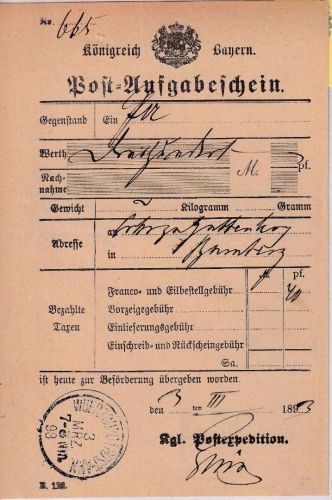 No. 665
Königreich Bayern.
Post-Aufgabeschein.
Gegenstand Ein
Werth Dreihundert M. pf.
Nach-
nahme
Gewicht Kilogramm Gramm
an
Adresse
in Bamberg
M. pf.
Franco- und Eilbestellgebühr 40
Bezahlte Vorzeigegebühr
Taxen Einlieferungsgebühr
Einschreib- und Rückscheingebühr
Sa.
ist heute zur Beförderung übergeben worden.
den 3 ten III 1893
3
MRZ
7-8 Nm.
93
Kgl. Postexpedition.